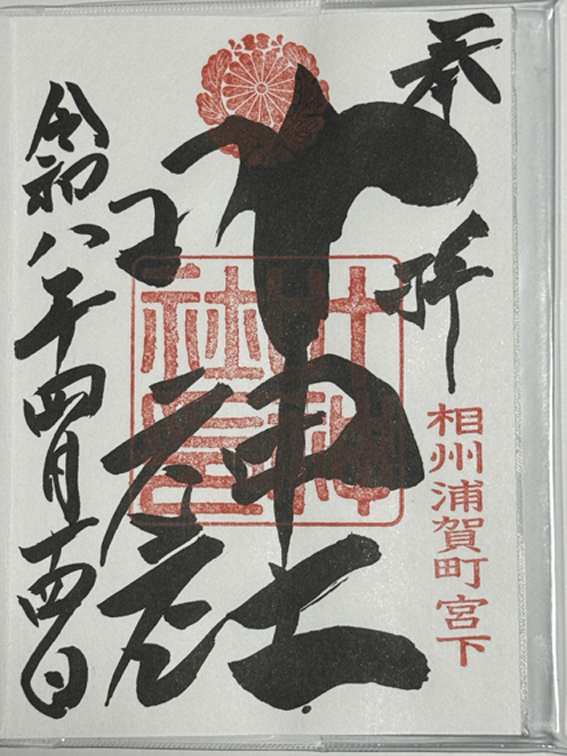 奉拝
相州浦賀町宮下
叶神社
叶神
社
令和八年四月十四日